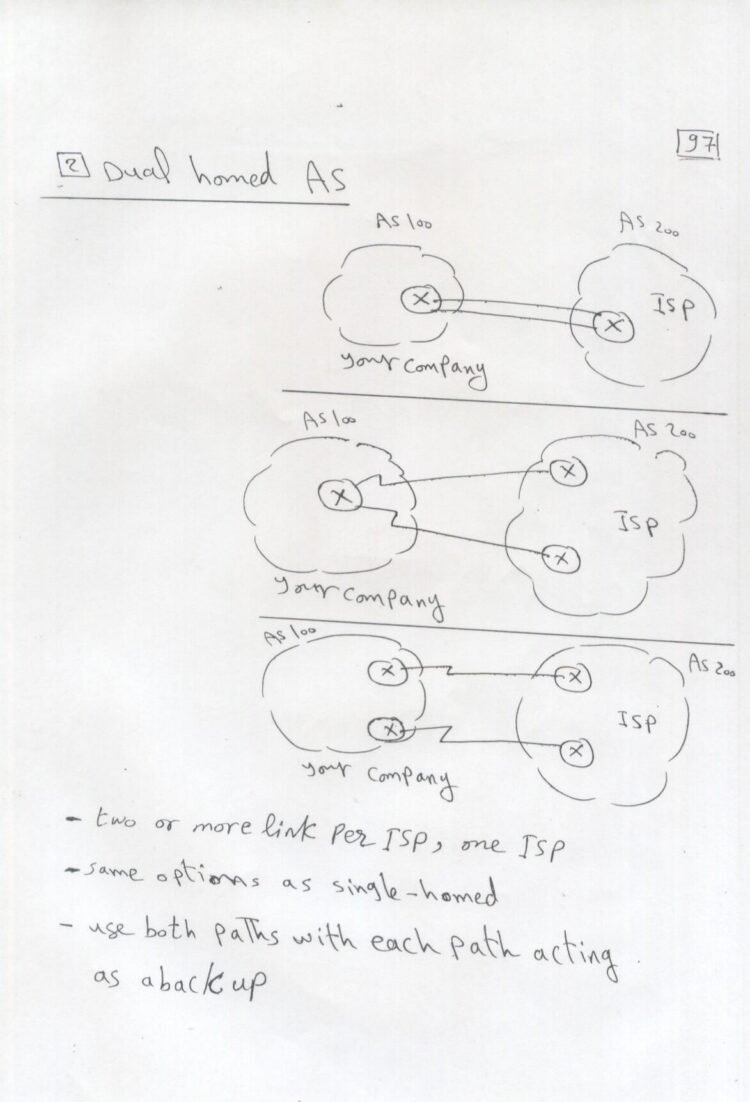 97
2 Dual homed AS
AS 100 AS 200
ISP
your company
AS 100 AS 200
ISP
your company
AS 100 AS 200
ISP
your company
- two or more link per ISP, one ISP
- same options as single-homed
- use both paths with each path acting
as a backup